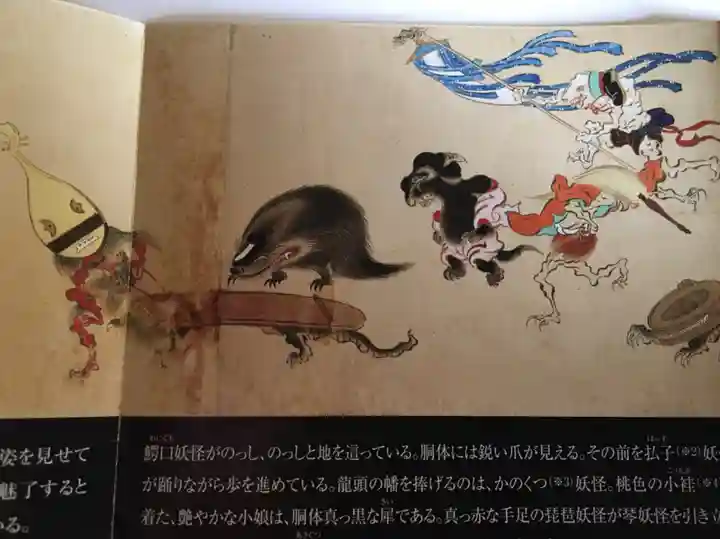 姿を見せて
魅了すると
いる。
わにぐち
ほっす
鰐口妖怪がのっし、のっしと地を這っている。胴体には鋭い爪が見える。その前を払子(※2)妖
こうちぎ
が踊りながら歩を進めている。龍頭の幡を捧げるのは、かのくつ(※3)妖怪。桃色の小袿(※4
さい
着た、艶やかな小娘は、胴体真っ黒な犀である。真っ赤な手足の琵琶妖怪が琴妖怪を引き